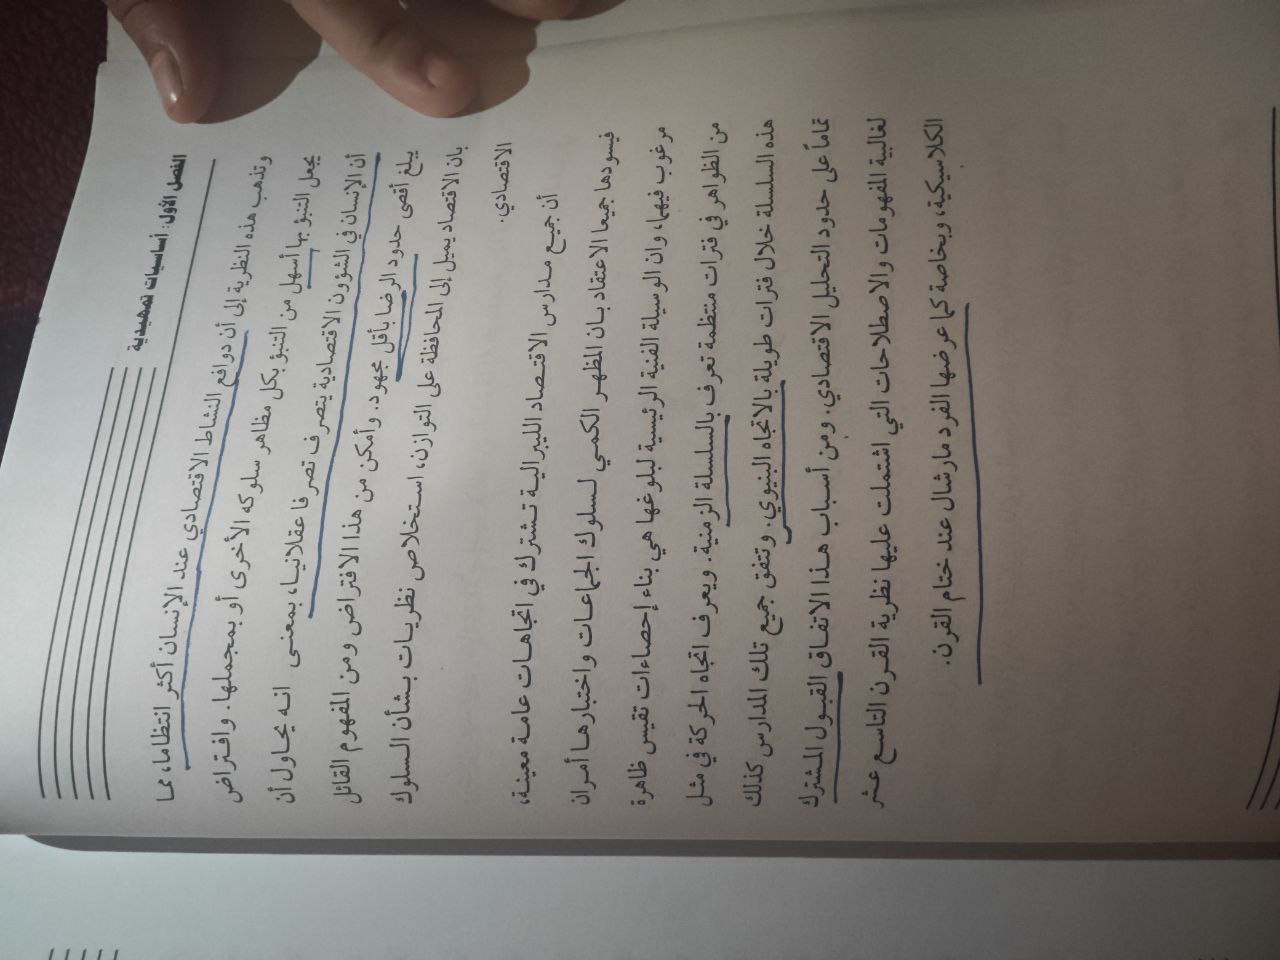 الفصل الأول: أساسيات تمهيدية
وتذهب هذه النظرية إلى أن دوافع النشاط الاقتصادي عند الإنسان أكثر انتظاما، مما
يجعل التنبؤ بها أسهل من التنبؤ بكل مظاهر سلوكه الأخرى أو بمجملها. وافتراض
أن الإنسان في الشؤون الاقتصادية يتصرف تصرفا عقلانيا، بمعنى انه يحاول أن
يبلغ أقصى حدود الرضا بأقل مجهود. وأمكن من هذا الافتراض ومن المفهوم القائل
بان الاقتصاد يميل إلى المحافظة على التوازن، استخلاص نظريات بشأن السلوك
الاقتصادي.
أن جميع مدارس الاقتصاد الليبرالية تشترك في اتجاهات عامة معينة،
فيسودها جميعا الاعتقاد بان المظهر الكمي لسلوك الجماعات واختبارها أمران
مرغوب فيهما، وان الوسيلة الفنية الرئيسية لبلوغها هي بناء إحصاءات تقيس ظاهرة
من الظواهر في فترات منتظمة تعرف بالسلسلة الزمنية. ويعرف اتجاه الحركة في مثل
هذه السلسلة خلال فترات طويلة بالاتجاه البنيوي. وتتفق جميع تلك المدارس كذلك
تماماً على حدود التحليل الاقتصادي. ومن أسباب هذا الاتفاق القبول المشترك
لغالبية المفهومات والاصطلاحات التي اشتملت عليها نظرية القرن التاسع عشر
الكلاسيكية، وبخاصة كما عرضها الفرد مارشال عند ختام القرن.